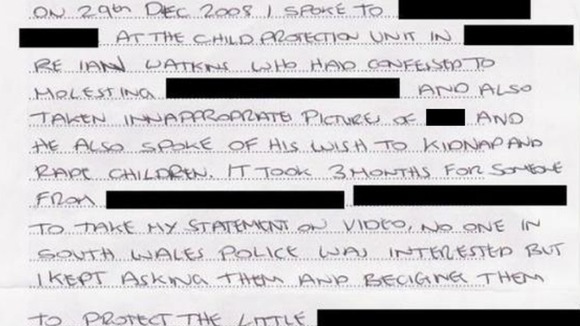 ON 29th DEC 2008 I SPOKE TO
AT THE CHILD PROTECTION UNIT IN
RE IAN WATKINS WHO HAD CONFESSED TO
MOLESTING AND ALSO
TAKEN INNAPPROPRIATE PICTURE OF AND
HE ALSO SPOKE OF HIS WISH TO KIDNAP AND
RAPE CHILDREN. IT TOOK 3 MONTHS FOR SOMEONE
FROM
TO TAKE MY STATEMENT ON VIDEO, NO ONE IN
SOUTH WALES POLICE WAS INTERESTED BUT
I KEPT ASKING THEM AND BEGIGING THEM
TO PROTECT THE LITTLE